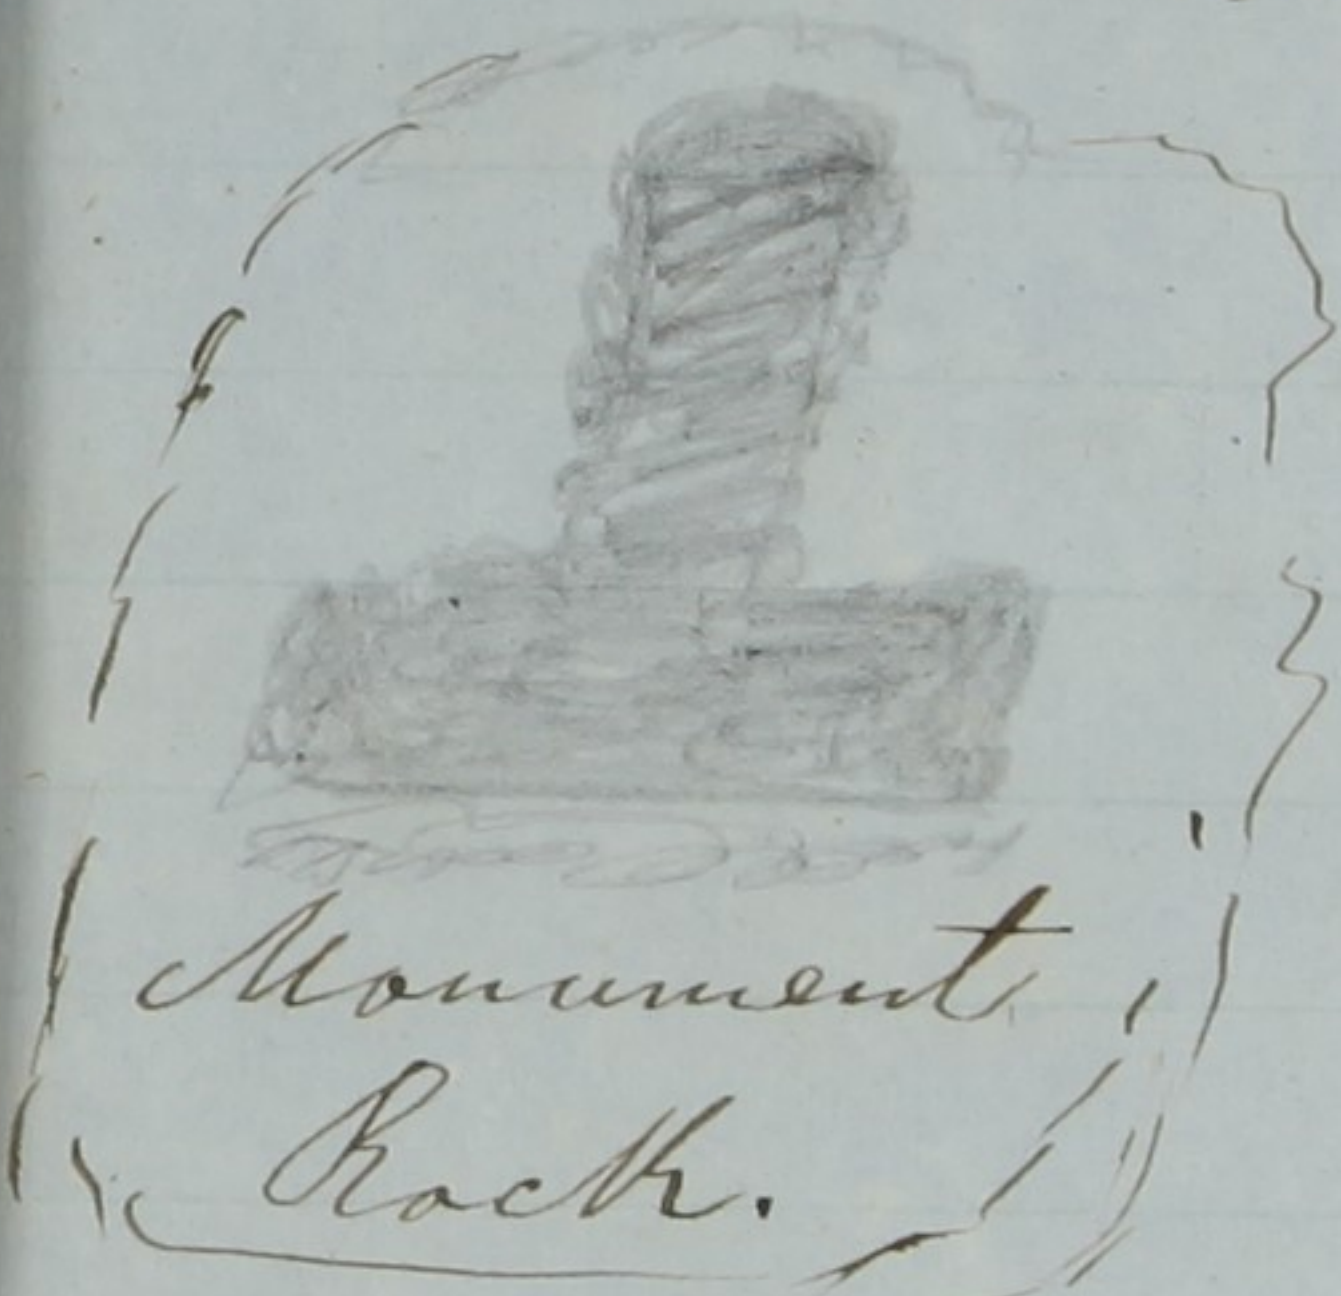 Monument
Rock.